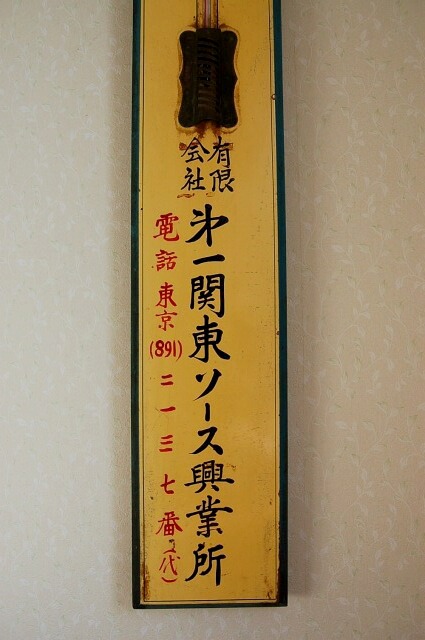 有限会社
第一関東ソース興業所
電話 東京(891)二一三七番(代)